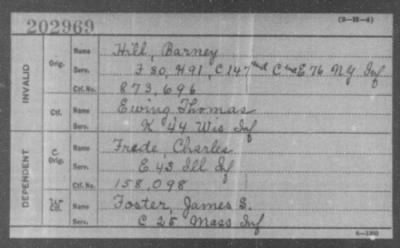 202969
(3-35-4)
INVALID
Orig.
Name Hill, Barney
Serv. F 80, H 91, C 147 and C and E 76 N Y Inf
Ctf. No. 873,696
Ctf.
Name Ewing Thomas
Serv. K 44 Wis Inf
DEPENDENT
C. Orig.
Name Frede, Charles
Serv. E 43 Ill Inf
Ctf. No. 158,098
Ctf.
Name Foster, James S.
Serv. C 25 Mass Inf